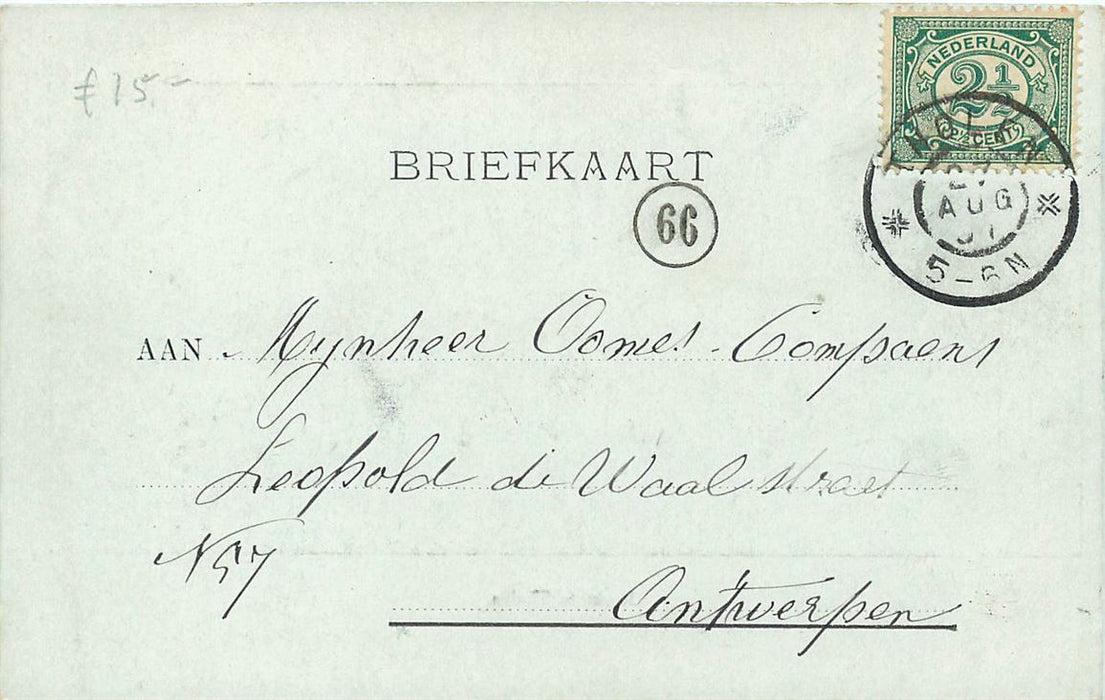 £15.-
NEDERLAND
2½
2½ CENT
THOLEN
AUG
5-6N
BRIEFKAART
66
AAN Mynheer Oomes - Compaens
Leopold de Waal straet
N 57
Antwerpen